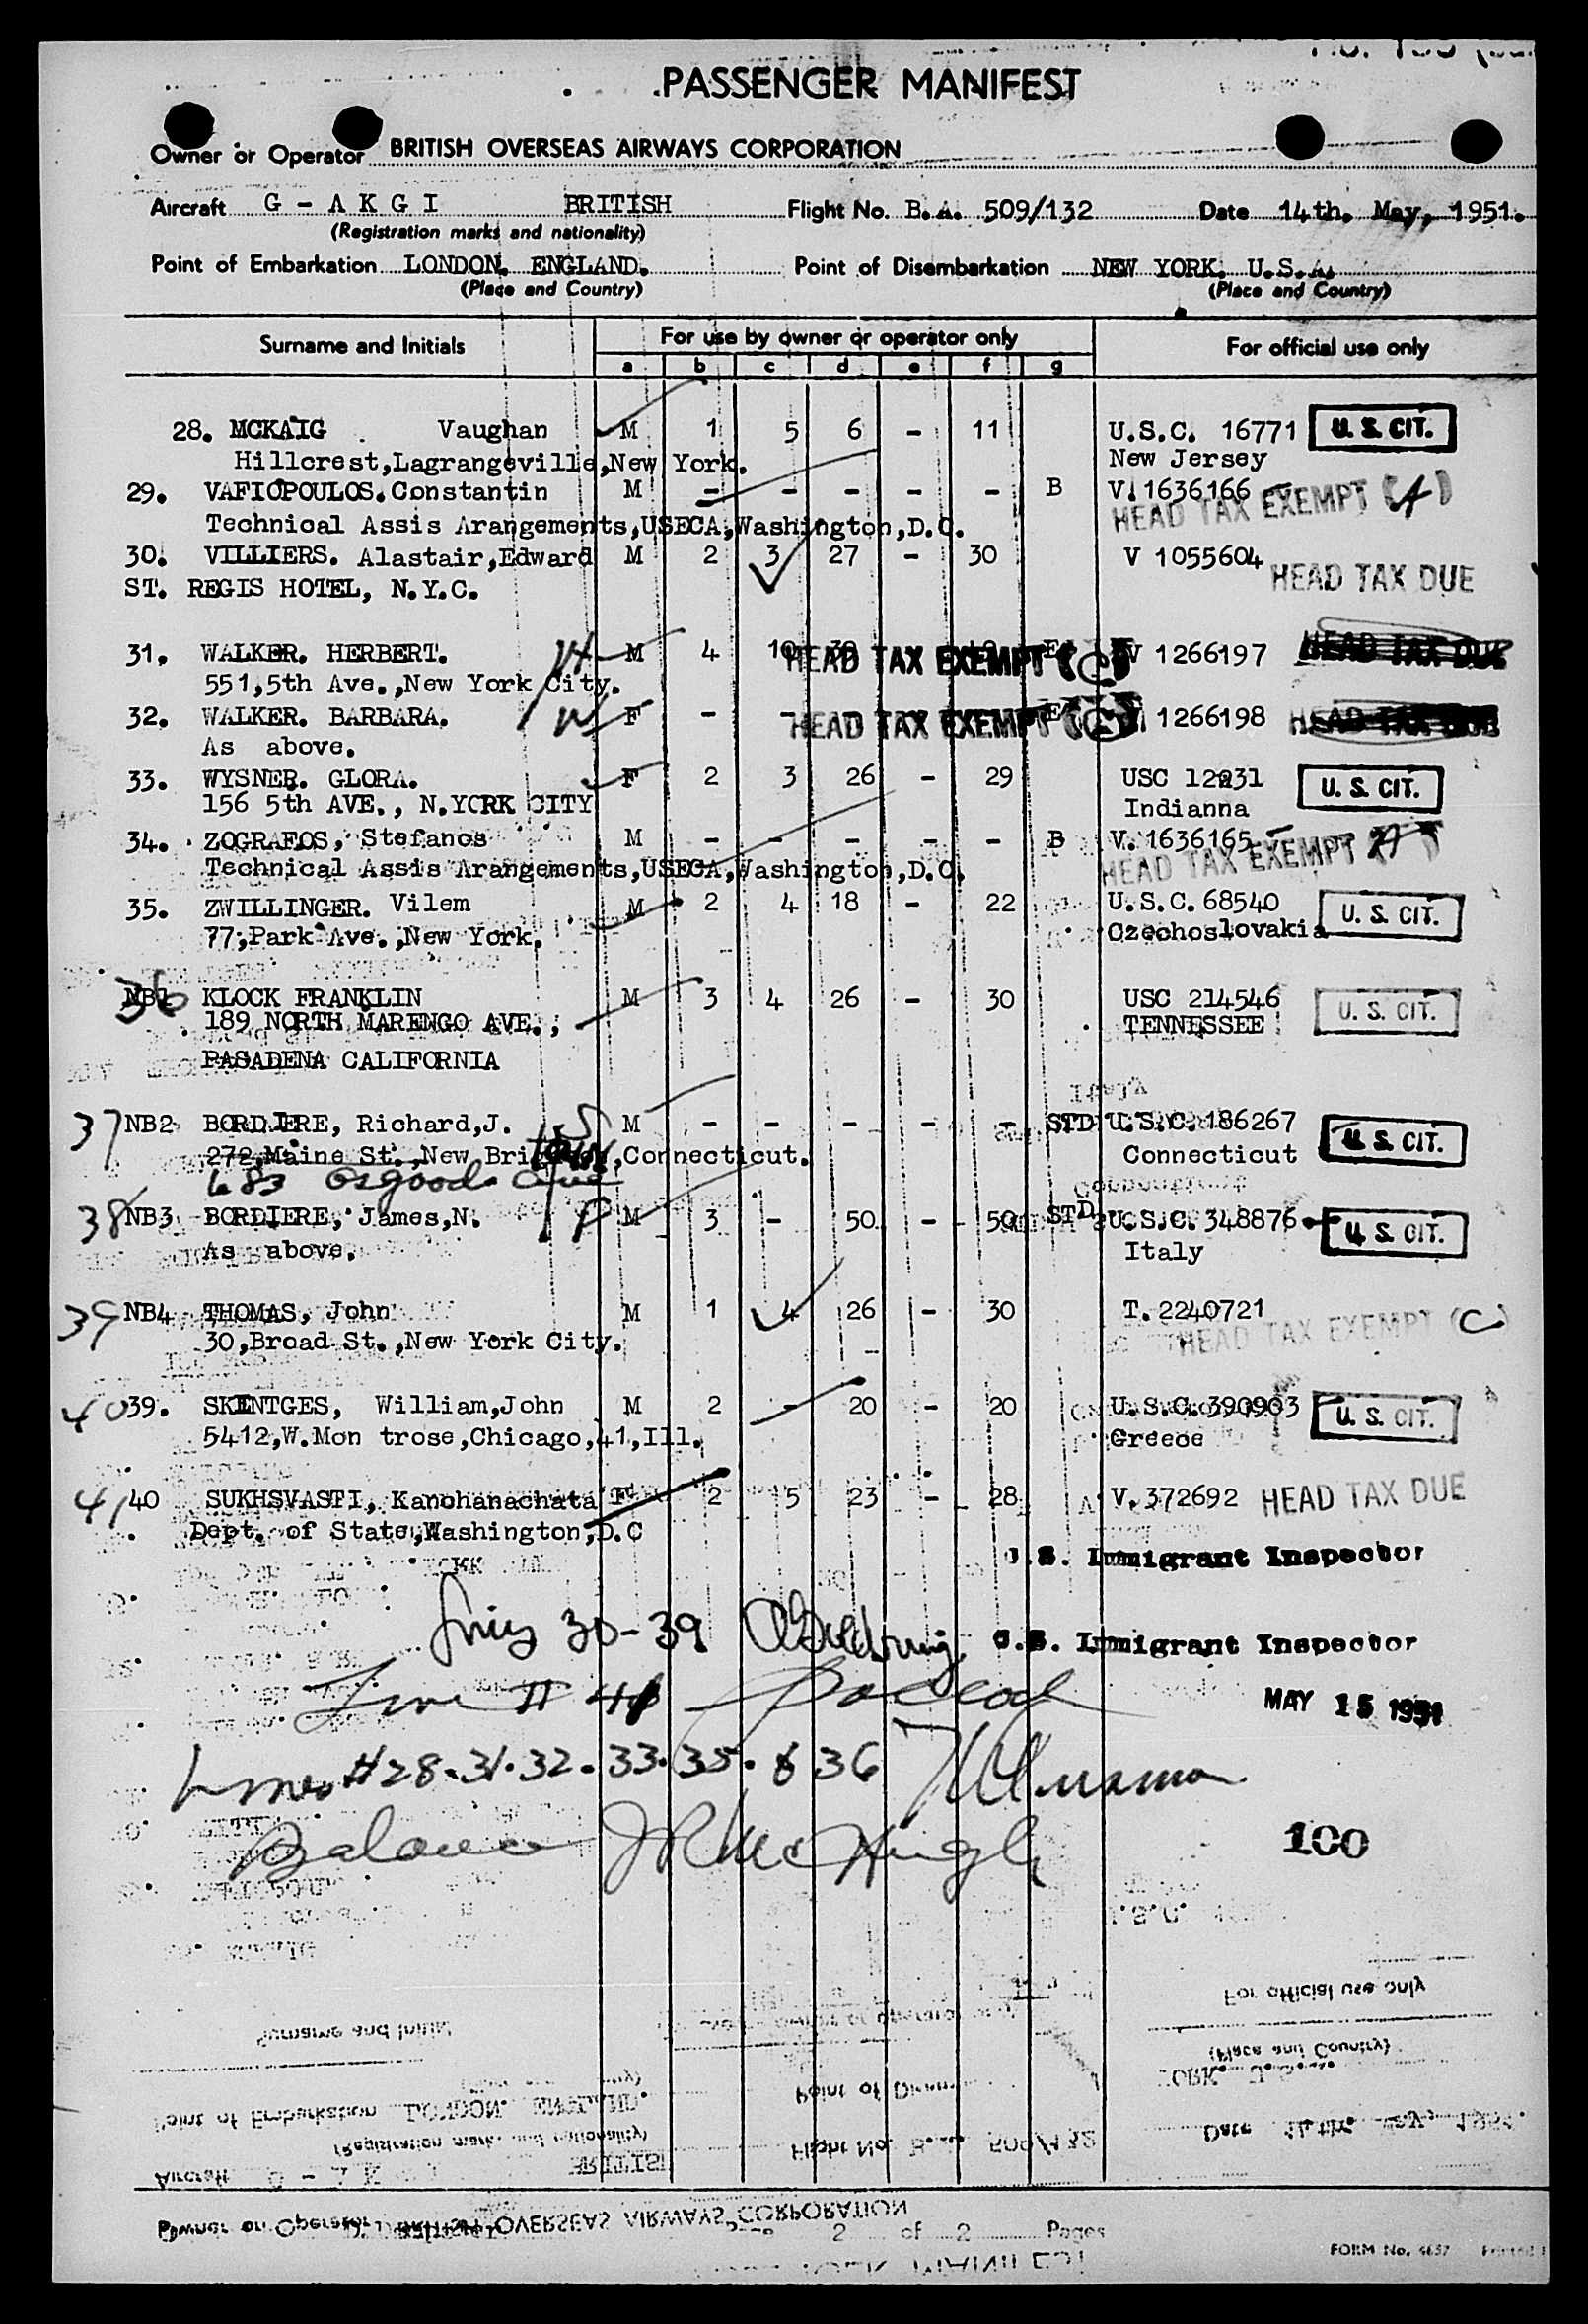 PASSENGER MANIFEST
Owner or Operator BRITISH OVERSEAS AIRWAYS CORPORATION
Aircraft G - A K G I BRITISH Flight No. B.A. 509/132 Date 14th. May, 1951.
(Registration marks and nationality)
Point of Embarkation LONDON. ENGLAND. Point of Disembarkation NEW YORK. U.S.A.
(Place and Country) (Place and Country)
Surname and Initials For use by owner or operator only For official use only
a b c d e f g
28. MCKAIG Vaughan M 1 5 6 - 11 U.S.C. 16771 U. S. CIT.
Hillcrest,Lagrangeville,New York. New Jersey
29. VAFIOPOULOS.Constantin M - - - - - B V.1636166
Technical Assis Arangements,USECA,Washington,D.C. HEAD TAX EXEMPT (A)
30. VILLIERS. Alastair,Edward M 2 3 27 - 30 V 1055604
ST. REGIS HOTEL, N.Y.C. HEAD TAX DUE
31. WALKER. HERBERT. M 4 HEAD TAX EXEMPT (C) V 1266197 HEAD TAX DUE
551,5th Ave.,New York City.
32. WALKER. BARBARA. F - - HEAD TAX EXEMPT (C) 1266198 HEAD TAX DUE
As above.
33. WYSNER. GLORA. F 2 3 26 - 29 USC U. S. CIT.
156 5th AVE., N.YORK CITY Indianna
34. ZOGRAFOS, Stefanos M - - - - - B V. 1636165
Technical Assis Arangements,USECA,Washington,D.C. HEAD TAX EXEMPT
35. ZWILLINGER. Vilem M 2 4 18 - 22 U.S.C. 68540 U. S. CIT.
77,Park Ave.,New York. Czechoslovakia
36 KLOCK FRANKLIN M 3 4 26 - 30 USC 214546 U. S. CIT.
189 NORTH MARENGO AVE., TENNESSEE
PASADENA CALIFORNIA
37 NB2 BORDIERE, Richard,J. M - - - - - STD U.S.C. 186267 U. S. CIT.
272,Maine St.,New Britain,Connecticut. Connecticut
683 Osgood Ave
38 NB3 BORDIERE, James,N. M 3 - 50 - 50 STD U.S.C. 348876 U. S. CIT.
As above. Italy
39 NB4 THOMAS, John M 1 4 26 - 30 T. 2240721
30,Broad St.,New York City. HEAD TAX EXEMPT (C)
40 39. SKENTGES, William,John M 2 - 20 - 20 U.S.C. 390903 U. S. CIT.
5412,W.Mon trose,Chicago,41,Ill. Greece
41 40 SUKHSVASTI, Kanchanachata F 2 5 23 - 28 V. 372692 HEAD TAX DUE
Dept. of State,Washington,D.C
U.S. Immigrant Inspector
30-39 U.S. Immigrant Inspector
Line # 41
MAY 15 1951
Lines #28-31-32-33-35-&36
Balance J R McHugh
100
2 of 2 Pages
FORM No. 4637